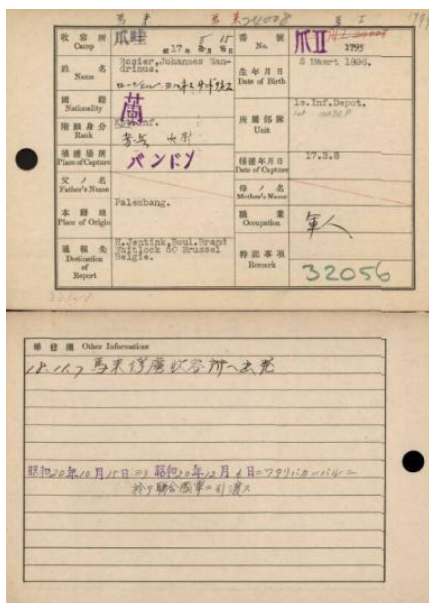 馬来 馬来 24008
收容所 Camp 爪哇 昭17年 5月 15日
番號 No. 爪II 1795
姓名 Name Rosier, Johannes San-
drinus.
生年月日 Date of Birth 5 Maart 1896.
國籍 Nationality 蘭
所屬部隊 Unit 1e.Inf.Depot.
階級身分 Rank
大尉
捕獲場所 Place of Capture バンドン
捕獲年月日 Date of Capture 17.3.8
父ノ名 Father's Name
母ノ名 Mother's Name
本籍地 Place of Origin Palembang.
職業 Occupation 軍人
通報先 Destination of Report H.Jentink, Boul. Brand
Whitlock 60 Brussel
Belgie.
特記事項 Remark 32056
Other Informations
18.11.7 馬来俘虜收容所へ
昭和20年10月15日 昭和20年12月
於テ聯合國軍ニ引渡ス